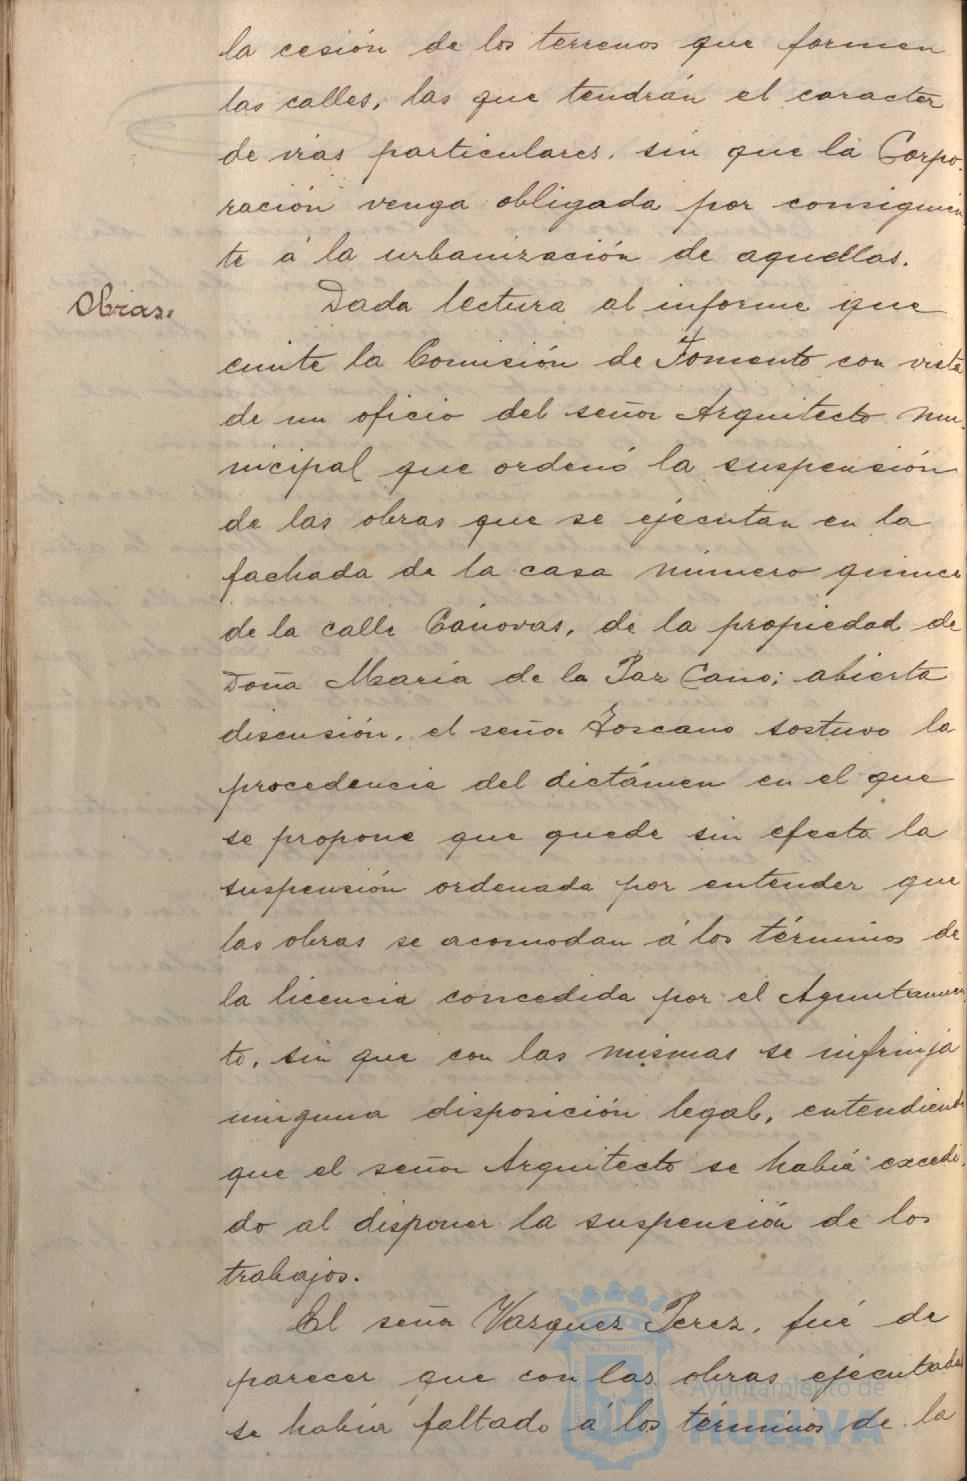 la cesión de los terrenos que formen
las calles, las que tendrán el caracter
de vias particulares, sin que la Corpo-
ración venga obligada por consiguien-
te á la urbanización de aquellas.
Obras.
Dada lectura al informe que
emite la Comisión de Fomento con vista
de un oficio del señor Arquitecto mu-
nicipal que ordenó la suspensión
de las obras que se ejecutan en la
fachada de la casa número quince
de la calle Cánovas, de la propiedad de
Doña Maria de la Paz Cano; abierta
discusión, el señor Toscano sostuvo la
procedencia del dictámen en el que
se propone que quede sin efecto la
suspensión ordenada por entender que
las obras se acomodan á los términos de
la licencia concedida por el Ayuntamien-
to, sin que con las mismas se infrinja
ninguna disposición legal, entendiendo
que el señor Arquitecto se había excedi-
do al disponer la suspensión de los
trabajos.
El señor Vazquez Perez, fué de
parecer que con las obras ejecutadas
se había faltado á los términos de la
Ayuntamiento de
HUELVA